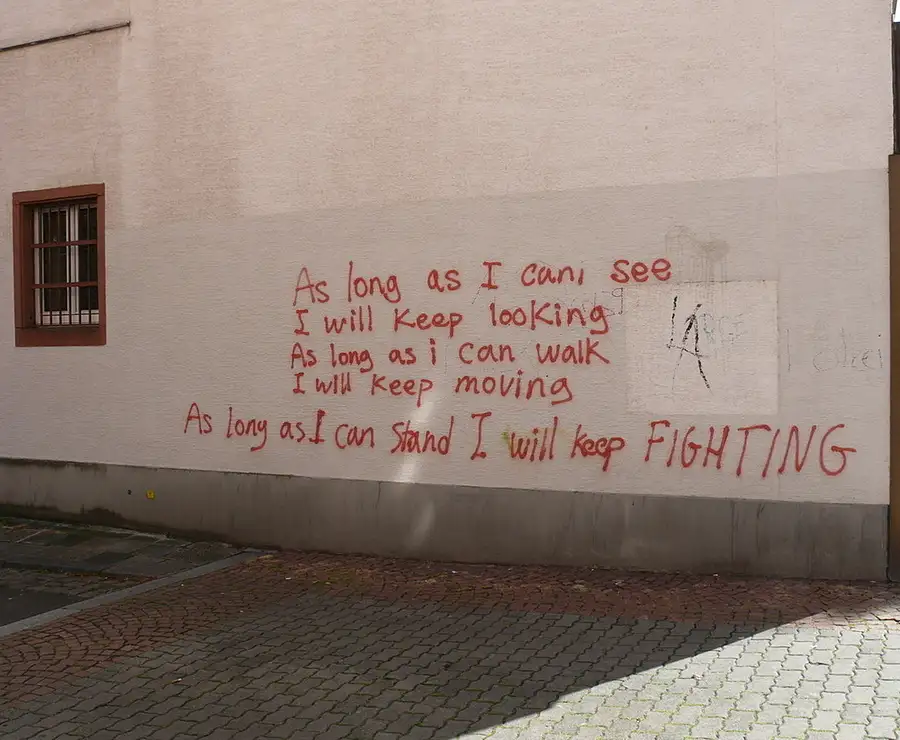 As long as I can, see
I will keep looking
As long as i can walk
I will keep moving
As long as I can stand I will keep FIGHTING